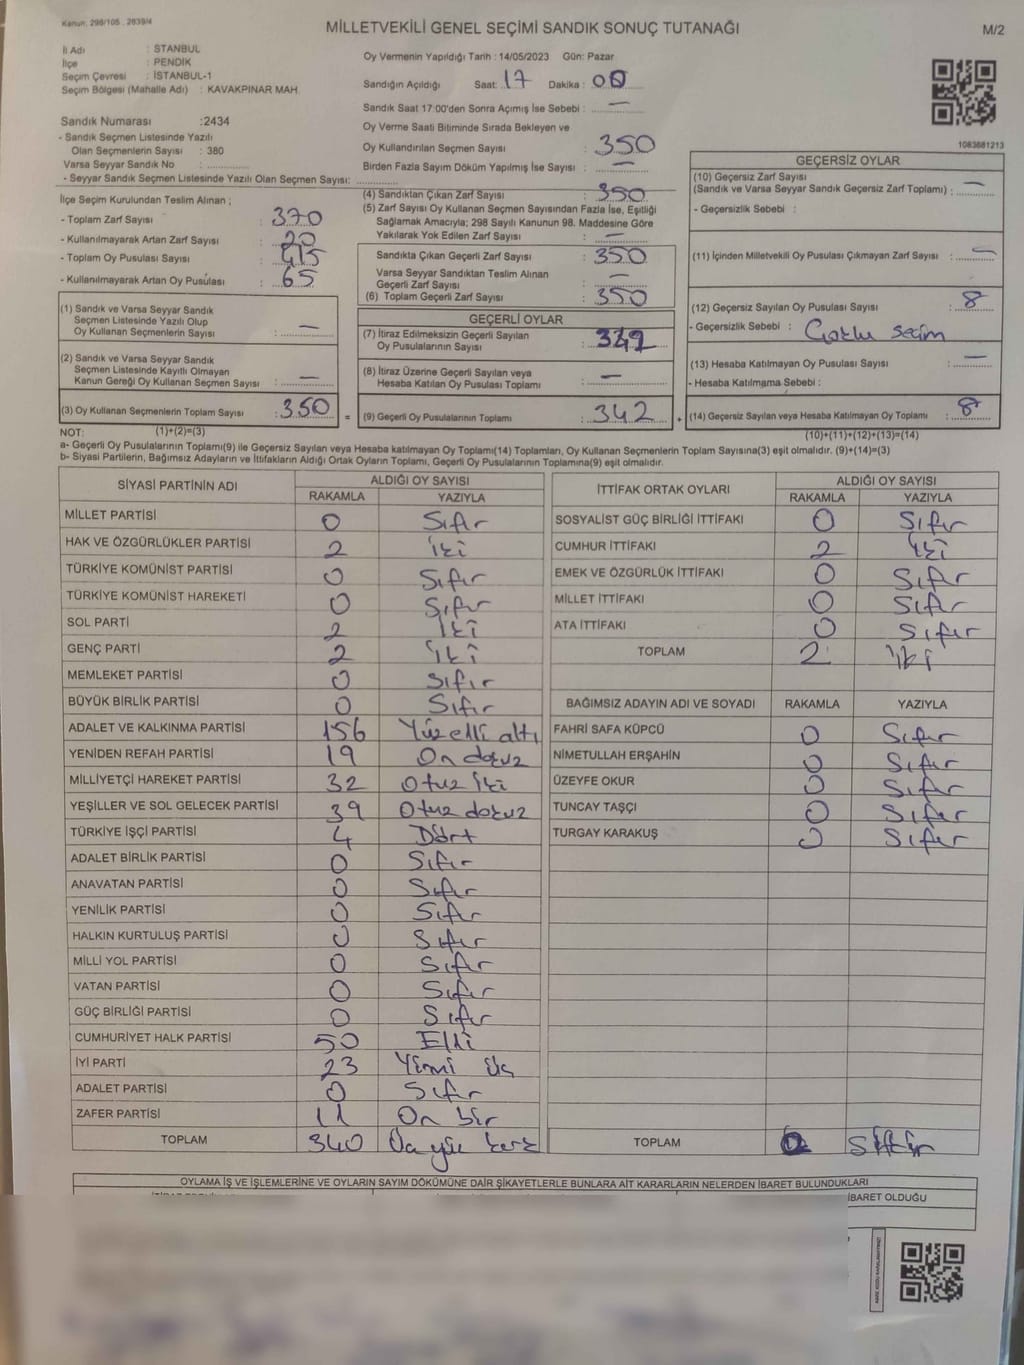 Kanun: 298/105 , 2839/4
MİLLETVEKİLİ GENEL SEÇİMİ SANDIK SONUÇ TUTANAĞI
M/2
İl Adı : STANBUL
İlçe : PENDİK
Seçim Çevresi : İSTANBUL-1
Seçim Bölgesi (Mahalle Adı) : KAVAKPINAR MAH.
Sandık Numarası :2434
- Sandık Seçmen Listesinde Yazılı
Olan Seçmenlerin Sayısı : 380
Varsa Seyyar Sandık No :
- Seyyar Sandık Seçmen Listesinde Yazılı Olan Seçmen Sayısı:
İlçe Seçim Kurulundan Teslim Alınan ;
- Toplam Zarf Sayısı : 370
- Kullanılmayarak Artan Zarf Sayısı : 20
- Toplam Oy Pusulası Sayısı : 415
- Kullanılmayarak Artan Oy Pusulası : 65
(1) Sandık ve Varsa Seyyar Sandık
Seçmen Listesinde Yazılı Olup
Oy Kullanan Seçmenlerin Sayısı : —
(2) Sandık ve Varsa Seyyar Sandık
Seçmen Listesinde Kayıtlı Olmayan
Kanun Gereği Oy Kullanan Seçmen Sayısı : —
(3) Oy Kullanan Seçmenlerin Toplam Sayısı : 350
(1)+(2)=(3)
Oy Vermenin Yapıldığı Tarih : 14/05/2023 Gün: Pazar
Sandığın Açıldığı Saat: 17 Dakika : 00
Sandık Saat 17:00'den Sonra Açımış İse Sebebi : —
Oy Verme Saati Bitiminde Sırada Bekleyen ve
Oy Kullandırılan Seçmen Sayısı : 350
Birden Fazla Sayım Döküm Yapılmış İse Sayısı : —
(4) Sandıktan Çıkan Zarf Sayısı : 350
(5) Zarf Sayısı Oy Kullanan Seçmen Sayısından Fazla İse, Eşitliği
Sağlamak Amacıyla; 298 Sayılı Kanunun 98. Maddesine Göre
Yakılarak Yok Edilen Zarf Sayısı : —
Sandıkta Çıkan Geçerli Zarf Sayısı : 350
Varsa Seyyar Sandıktan Teslim Alınan
Geçerli Zarf Sayısı : —
(6) Toplam Geçerli Zarf Sayısı : 350
GEÇERLİ OYLAR
(7) İtiraz Edilmeksizin Geçerli Sayılan
Oy Pusulalarının Sayısı : 342
(8) İtiraz Üzerine Geçerli Sayılan veya
Hesaba Katılan Oy Pusulası Toplamı : —
= (9) Geçerli Oy Pusulalarının Toplamı : 342 +
1083681213
GEÇERSİZ OYLAR
(10) Geçersiz Zarf Sayısı
(Sandık ve Varsa Seyyar Sandık Geçersiz Zarf Toplamı) : —
- Geçersizlik Sebebi :
(11) İçinden Milletvekili Oy Pusulası Çıkmayan Zarf Sayısı : —
(12) Geçersiz Sayılan Oy Pusulası Sayısı : 8
- Geçersizlik Sebebi : Çoklu seçim
(13) Hesaba Katılmayan Oy Pusulası Sayısı : —
- Hesaba Katılmama Sebebi :
(14) Geçersiz Sayılan veya Hesaba Katılmayan Oy Toplamı : 8
(10)+(11)+(12)+(13)=(14)
NOT:
a- Geçerli Oy Pusulalarının Toplamı(9) ile Geçersiz Sayılan veya Hesaba katılmayan Oy Toplamı(14) Toplamları, Oy Kullanan Seçmenlerin Toplam Sayısına(3) eşit olmalıdır. (9)+(14)=(3)
b- Siyasi Partilerin, Bağımsız Adayların ve İttifakların Aldığı Ortak Oyların Toplamı, Geçerli Oy Pusulalarının Toplamına(9) eşit olmalıdır.
SİYASİ PARTİNİN ADI ALDIĞI OY SAYISI
RAKAMLA YAZIYLA
MİLLET PARTİSİ 0 Sıfır
HAK VE ÖZGÜRLÜKLER PARTİSİ 2 İki
TÜRKİYE KOMÜNİST PARTİSİ 0 Sıfır
TÜRKİYE KOMÜNİST HAREKETİ 0 Sıfır
SOL PARTİ 2 İki
GENÇ PARTİ 2 İki
MEMLEKET PARTİSİ 0 Sıfır
BÜYÜK BİRLİK PARTİSİ 0 Sıfır
ADALET VE KALKINMA PARTİSİ 156 Yüzelli altı
YENİDEN REFAH PARTİSİ 19 On dokuz
MİLLİYETÇİ HAREKET PARTİSİ 32 Otuz iki
YEŞİLLER VE SOL GELECEK PARTİSİ 39 Otuz dokuz
TÜRKİYE İŞÇİ PARTİSİ 4 Dört
ADALET BİRLİK PARTİSİ 0 Sıfır
ANAVATAN PARTİSİ 0 Sıfır
YENİLİK PARTİSİ 0 Sıfır
HALKIN KURTULUŞ PARTİSİ 0 Sıfır
MİLLİ YOL PARTİSİ 0 Sıfır
VATAN PARTİSİ 0 Sıfır
GÜÇ BİRLİĞİ PARTİSİ 0 Sıfır
CUMHURİYET HALK PARTİSİ 50 Elli
İYİ PARTİ 23 Yirmi üç
ADALET PARTİSİ 0 Sıfır
ZAFER PARTİSİ 11 On bir
TOPLAM 340 Üç yüz kırk
İTTİFAK ORTAK OYLARI ALDIĞI OY SAYISI
RAKAMLA YAZIYLA
SOSYALİST GÜÇ BİRLİĞİ İTTİFAKI 0 Sıfır
CUMHUR İTTİFAKI 2 İki
EMEK VE ÖZGÜRLÜK İTTİFAKI 0 Sıfır
MİLLET İTTİFAKI 0 Sıfır
ATA İTTİFAKI 0 Sıfır
TOPLAM 2 İki
BAĞIMSIZ ADAYIN ADI VE SOYADI RAKAMLA YAZIYLA
FAHRİ SAFA KÜPCÜ 0 Sıfır
NİMETULLAH ERŞAHİN 0 Sıfır
ÜZEYFE OKUR 0 Sıfır
TUNCAY TAŞÇI 0 Sıfır
TURGAY KARAKUŞ 0 Sıfır
TOPLAM 0 Sıfır
OYLAMA İŞ VE İŞLEMLERİNE VE OYLARIN SAYIM DÖKÜMÜNE DAİR ŞİKAYETLERLE BUNLARA AİT KARARLARIN NELERDEN İBARET BULUNDUKLARI
İBARET OLDUĞU